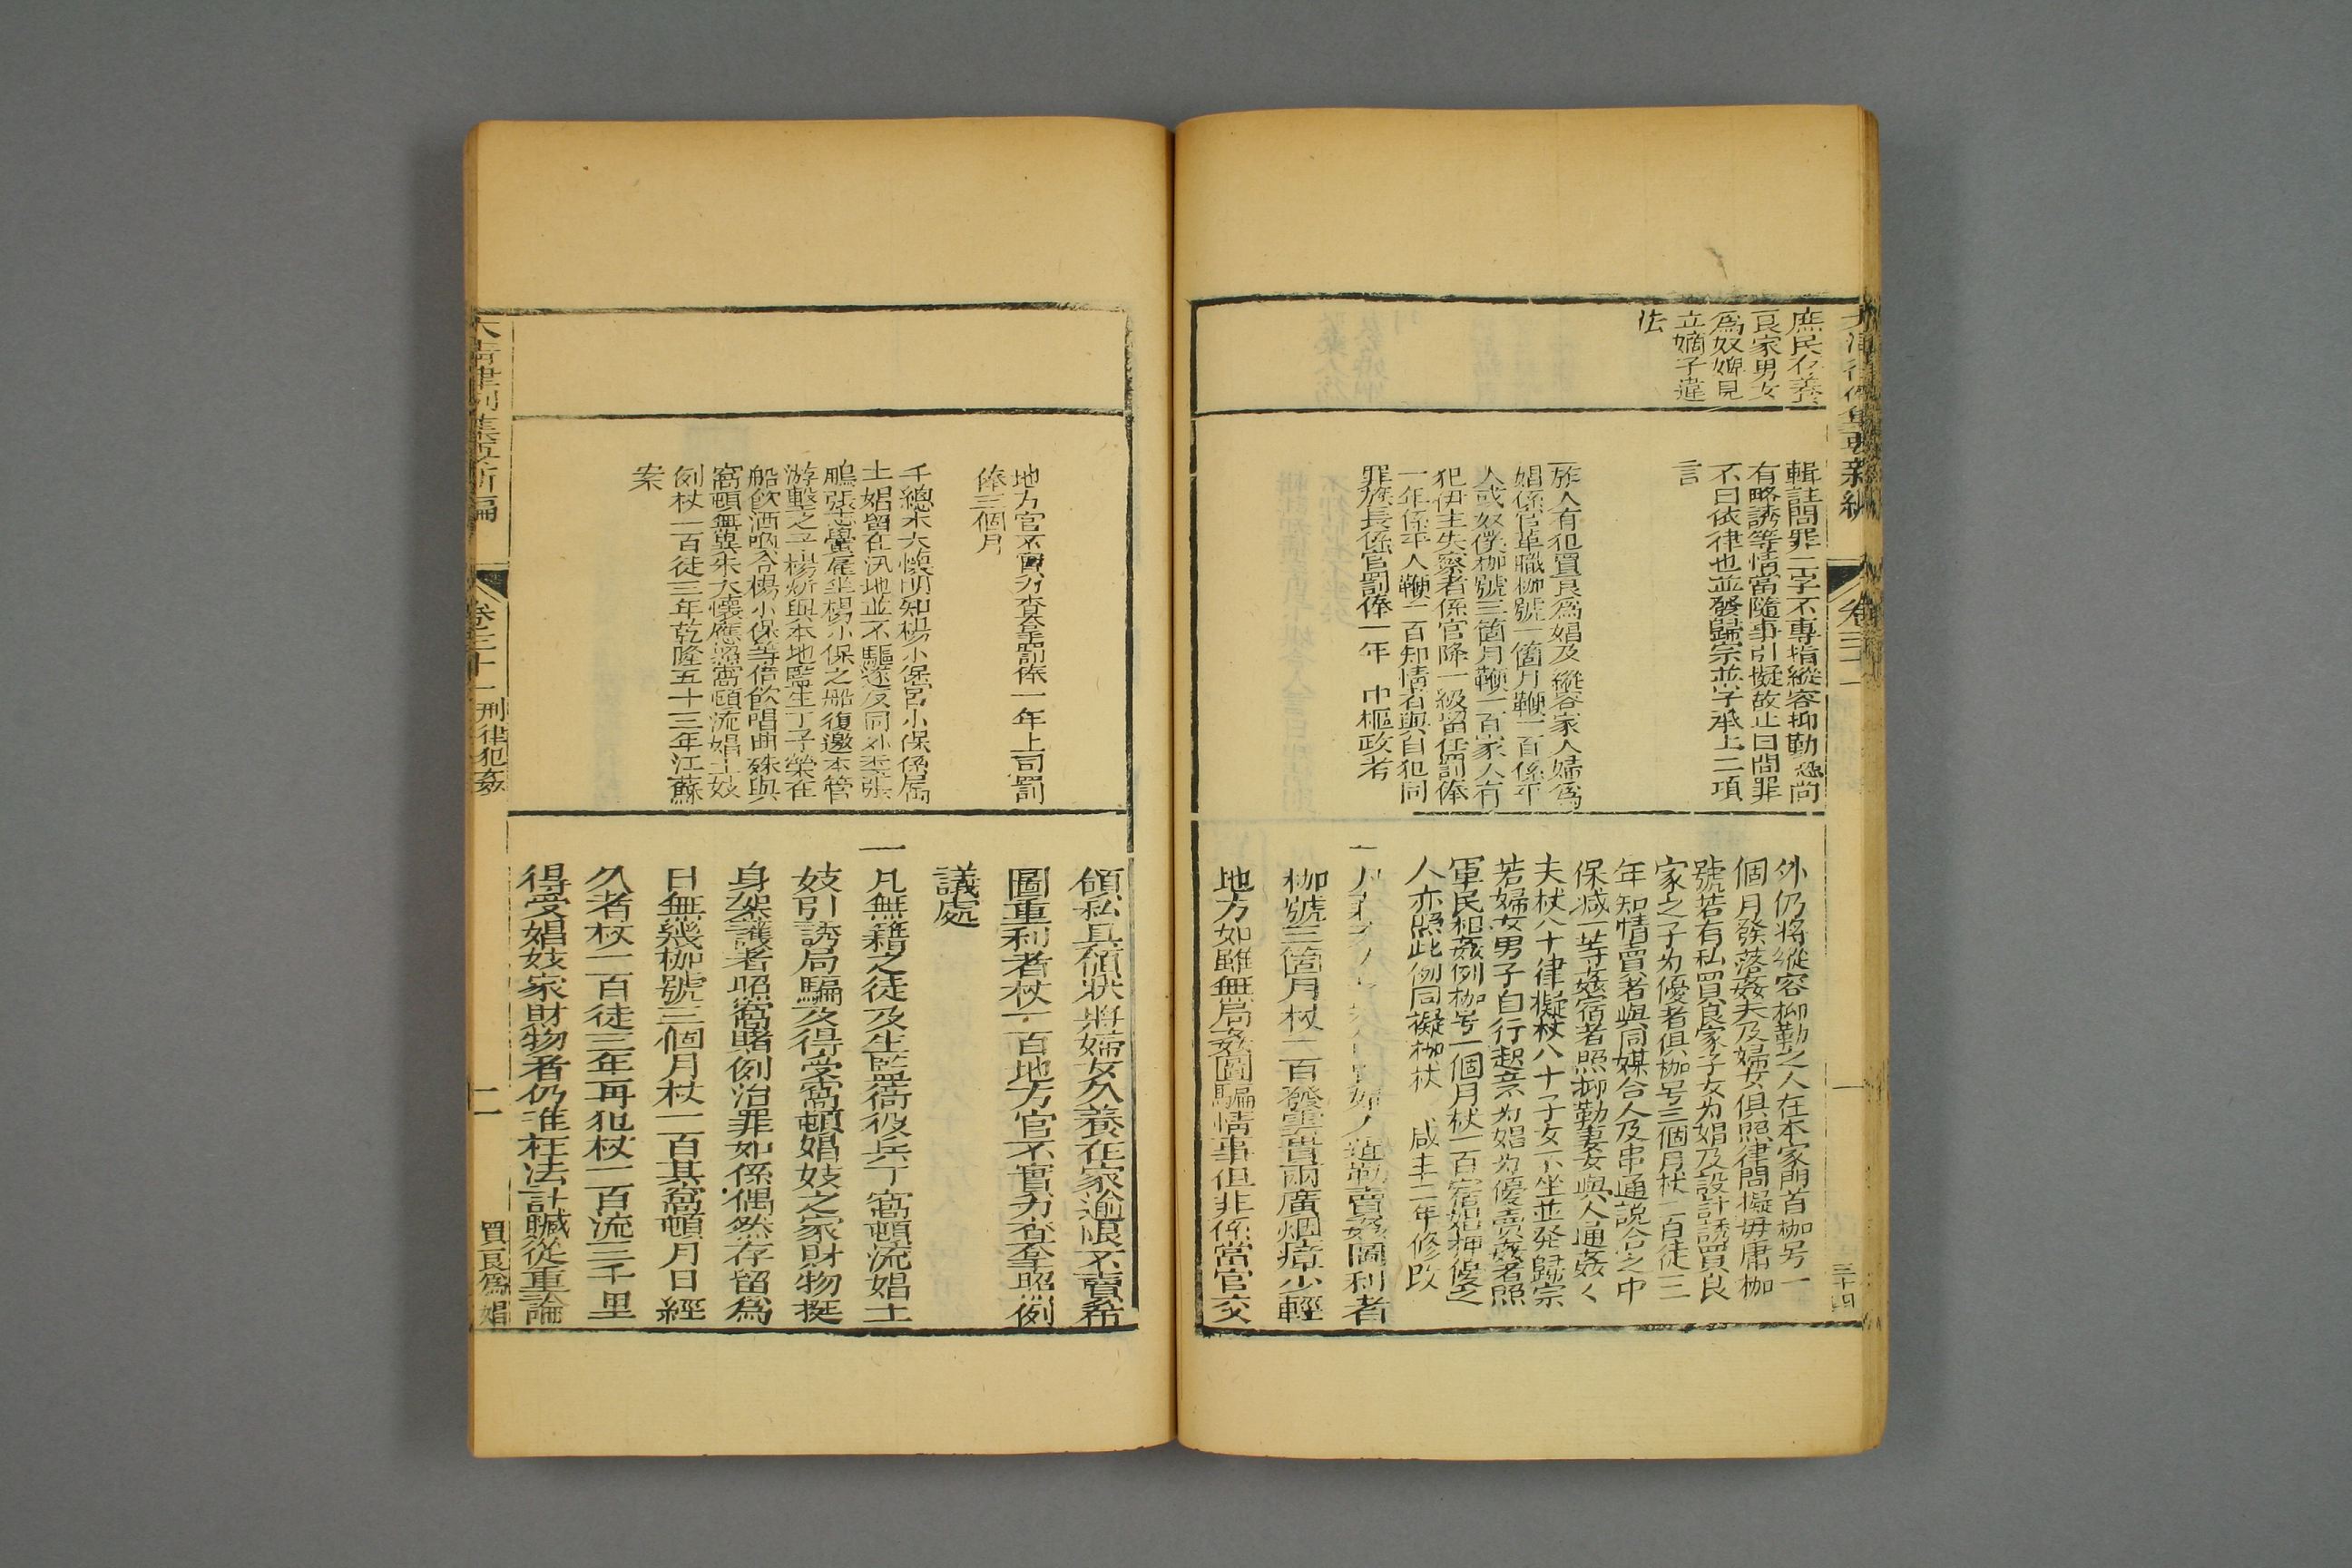 庶民存養
良家男女
爲奴婢見
立嫡子違
法
輯註問罪二字不專指縱容抑勒恐尚
有略誘等情當隨事引擬故止曰問罪
不曰依律也並發歸宗並字承上二項
言
一旗人有犯買良爲娼及縱容家人婦爲
娼係官革職枷號一箇月鞭一百係平
人或奴僕枷號三箇月鞭一百家人有
犯伊主失察者係官降一級留任罰俸
一年係平人鞭一百知情者與自犯同
罪族長係官罰俸一年 中樞政考
外仍將縱容抑勒之人在本家門首枷号一
個月發落姦夫及婦女俱照律問擬毋庸枷
號若有私買良家子女为娼及設計誘買良
家之子为優者俱枷号三個月杖一百徒三
年知情賣者與同媒合人及串通說合之中
保減一等姦宿者照抑勒妻女與人通姦
夫杖八十律擬杖八十子女不坐並発歸宗
若婦女男子自行起意为娼为優賣姦者照
軍民相姦例枷号一個月杖一百宿娼狎優之
人亦照此例同擬枷杖 咸丰二年修改
婦人逼勒賣姦圖利者
枷號三箇月杖一百發雲貴兩廣烟瘴少輕
地方如雖無局姦圖騙情事但非係當官交
大清律例集要新編
卷三十一
三十四
地方官不實力查拿罰俸一年上司罰
俸三個月
千總朱大懷明知楊小保宮小保係屬
土娼留在汛地並不驅逐反同外委張
鵬張志學屢坐楊小保之船復邀本管
游擊之子楊炘與本地監生丁子榮在
船飲酒喚令楊小保等倍飲唱曲殊與
窩頓無異朱大懷應照窩頓流娼土妓
例杖一百徒三年乾隆五十三年江蘇
案
領私具領狀將婦女久養在家逾限不賣希
圖重利者杖一百地方官不實力查拿照例
議處
一凡無籍之徒及生監衙役兵丁窩頓流娼土
妓引誘局騙及得受窩頓娼妓之家財物挺
身架護者照窩賭例治罪如係偶然存留爲
日無幾枷號三個月杖一百其窩頓月日經
久者杖一百徒三年再犯杖一百流三千里
得受娼妓家財物者仍准枉法計贓從重論
大清律例集要新編
卷三十一 刑律犯姦
二
買良爲娼